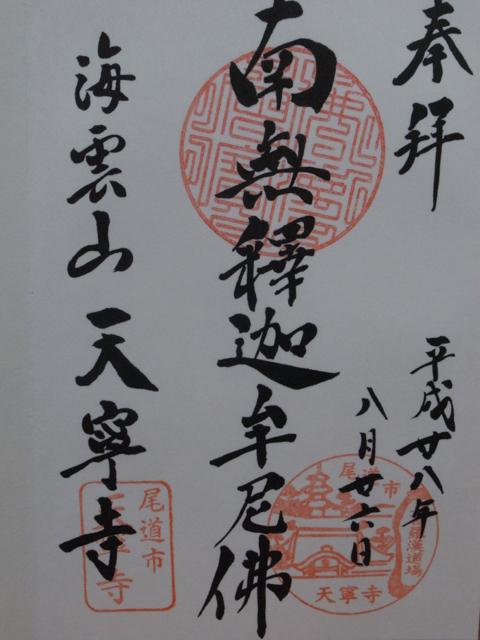 奉拝
平成廿八年
八月廿六日
南無釋迦牟尼佛
海雲山 天寧寺
尾道市
羅漢道場
天寧寺
尾道市
天寧寺